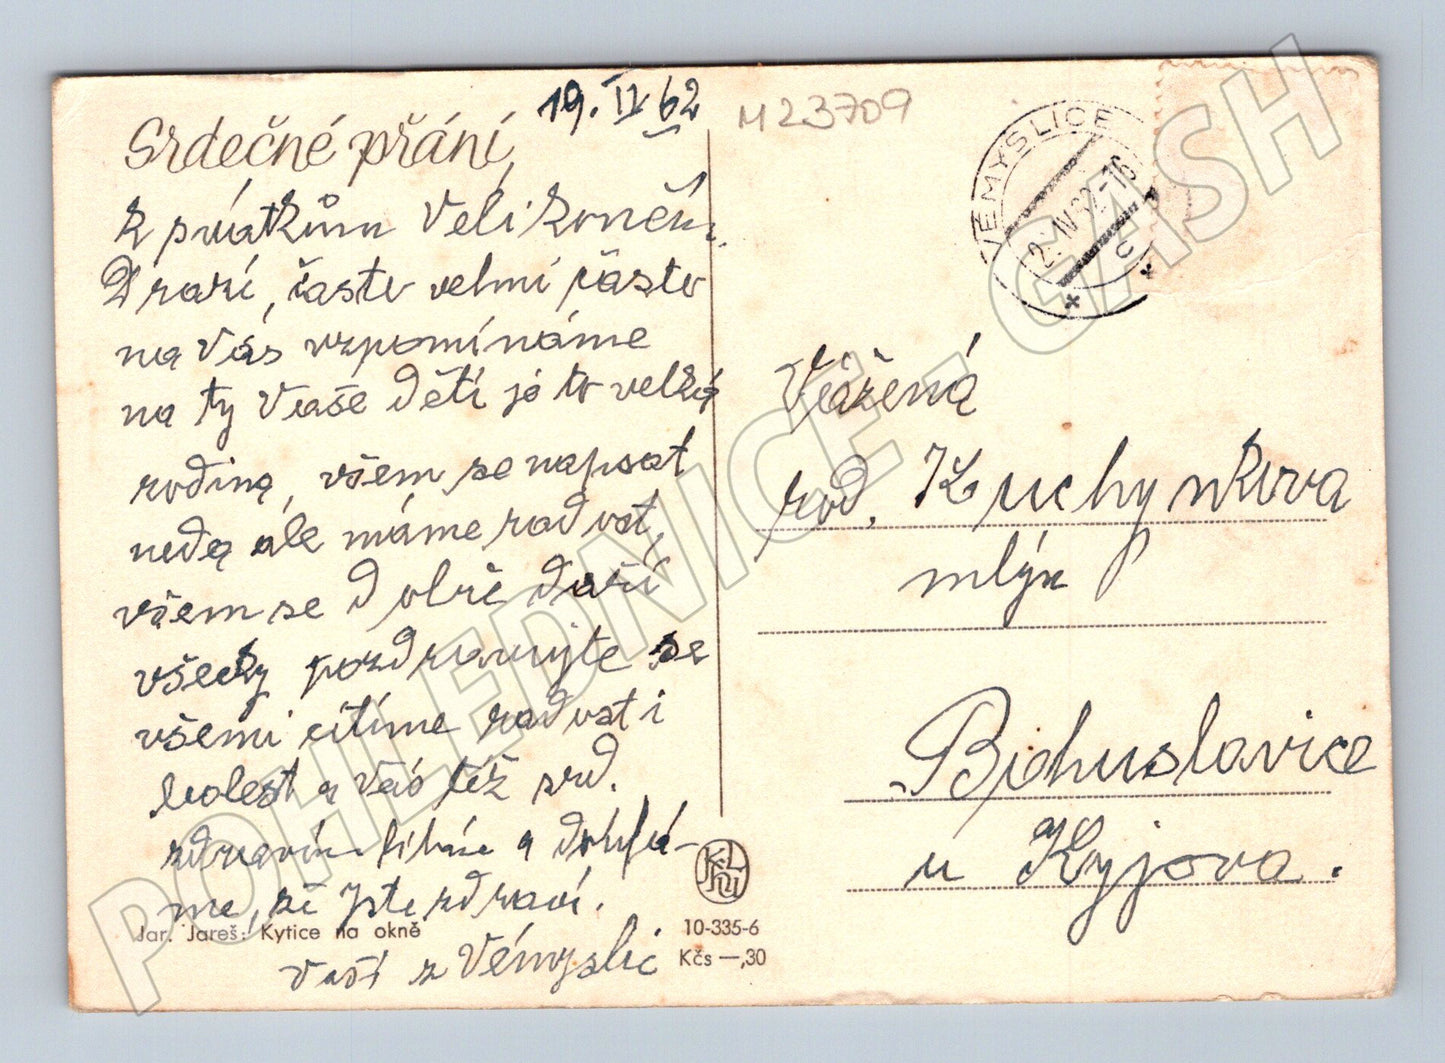 19. IV 62
M 23709
Srdečné přání
k svátkům Velikonoč
Drazí, často velmi často
na Vás vzpomínáme
na ty Vaše děti je to velká
rodina, všem se napsat
nedá ale máme rad vat
všem se dobře daří
všecky pozdravujte se
všemi cítíme radost i
bolest a Vás též srd.
zdravím líbáme a doufá-
me, že jste zdraví.
Vaši z Vémyslic
Jar. Jareš: Kytice na okně
10-335-6
Kčs —,30
VÉMYSLICE
2. IV. 62-16
c
Vážená
rod. Kuchyňkova
mlýn
Bohuslavice
u Kyjova.
POHLEDNICE - GASH